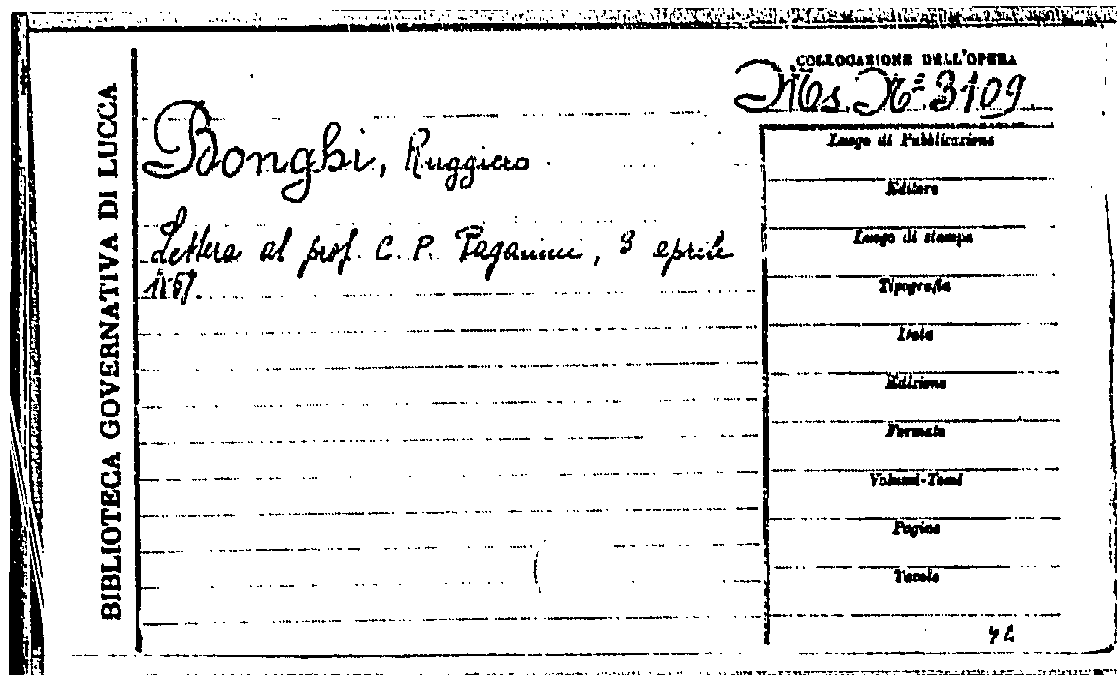 BIBLIOTECA GOVERNATIVA DI LUCCA
COLLOCAZIONE DELL'OPERA
Ms. Nº 3109
Bonghi, Ruggiero
Lettera al prof. C. P. Paganini, 3 aprile
1857.
Luogo di Pubblicazione
Editore
Luogo di stampa
Tipografia
Data
Edizione
Formato
Volumi-Tomi
Pagine
Tavole